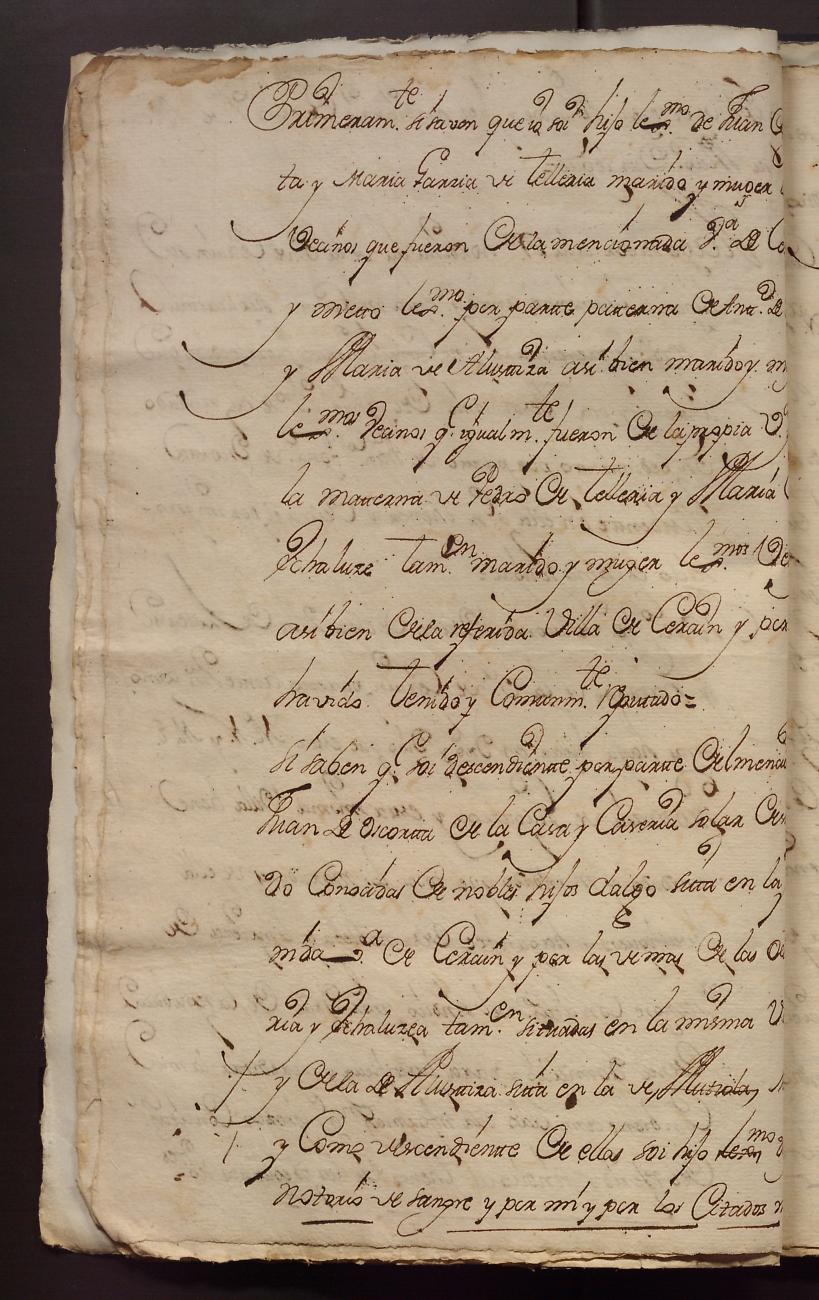 Primeram.te si saven que io soi hijo lexmo. de Juan
ta y Maria Garzia de Telleria marido y muger
Vecinos que fueron de la mencionada V.a de
y nietto lexmo. por partte patterna de Antt.o de
y Maria de Alustiza asi bien marido y
lexmos. Vecinos q.e igualm.te fueron de la propia V.
la matterna de Pedro de Telleria y Maria
Echaluze tam.en marido y muger lexmos
asi bien de la referida Villa de Cerain y por
havido tenido y Comunm.te Reputado=
Si saben q.e soi descendiente por partte del
Juan de Ascortta de la Casa y Caseria solar
do Conocidas de nobles hijos dalgo sitta en la
mda V.a de Cerain y por las demas de las
ria y Echaluzea tam.en situadas en la misma V
y de la de Alustiza sitta en la de Mutiloa
y Como descendiente de ellas soi hijo lexmo
nottorio de sangre y por mi y por los Citados